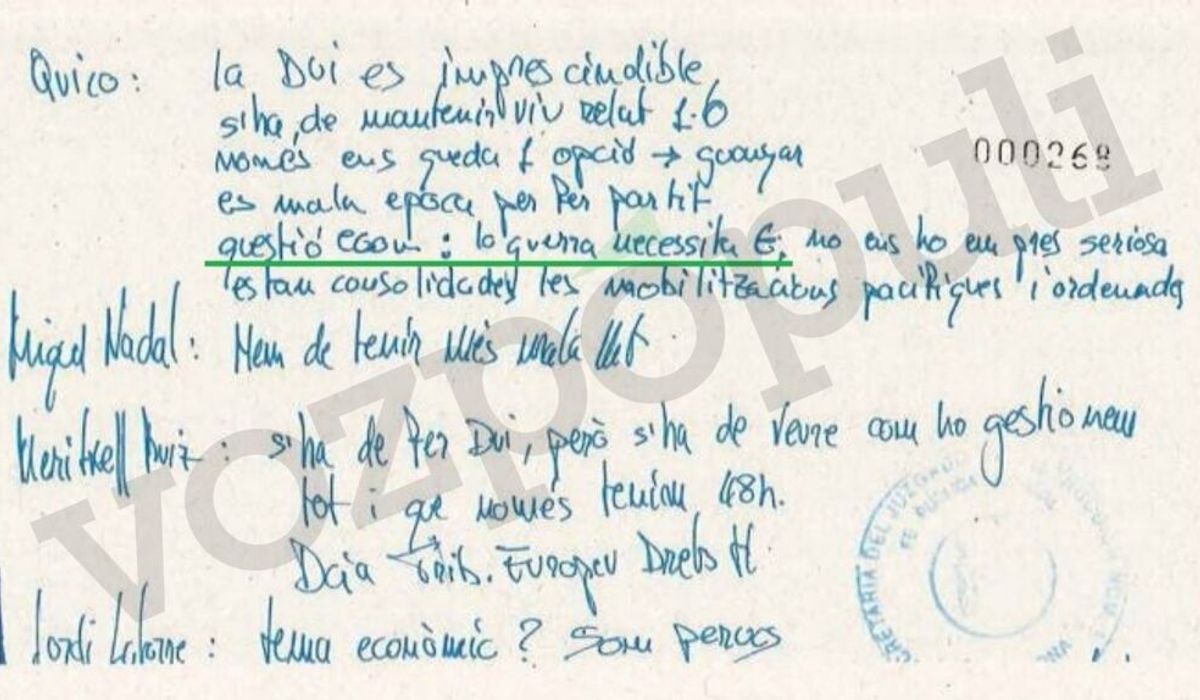 Quico: la DUI es imprescindible,
s'ha de mantenir viu relat 1-O
000268
només ens queda 1 opció → guanyar
es mala època per fer partit
questió econ: la guerra necessita €, no ens ho em pres seriosa
estan consolidades les mobilitzacions pacífiques i ordenades
Miquel Nadal: Hem de tenir més mala llet
Meritxell Ruiz: s'ha de fer DUI, però s'ha de veure com ho gestionem
tot i que només tenim 48h.
Trib. Europeu Drets H
Jordi: tema econòmic? Som
SECRETARIA DEL JUZGADO
FE PÚBLICA
vozpópuli